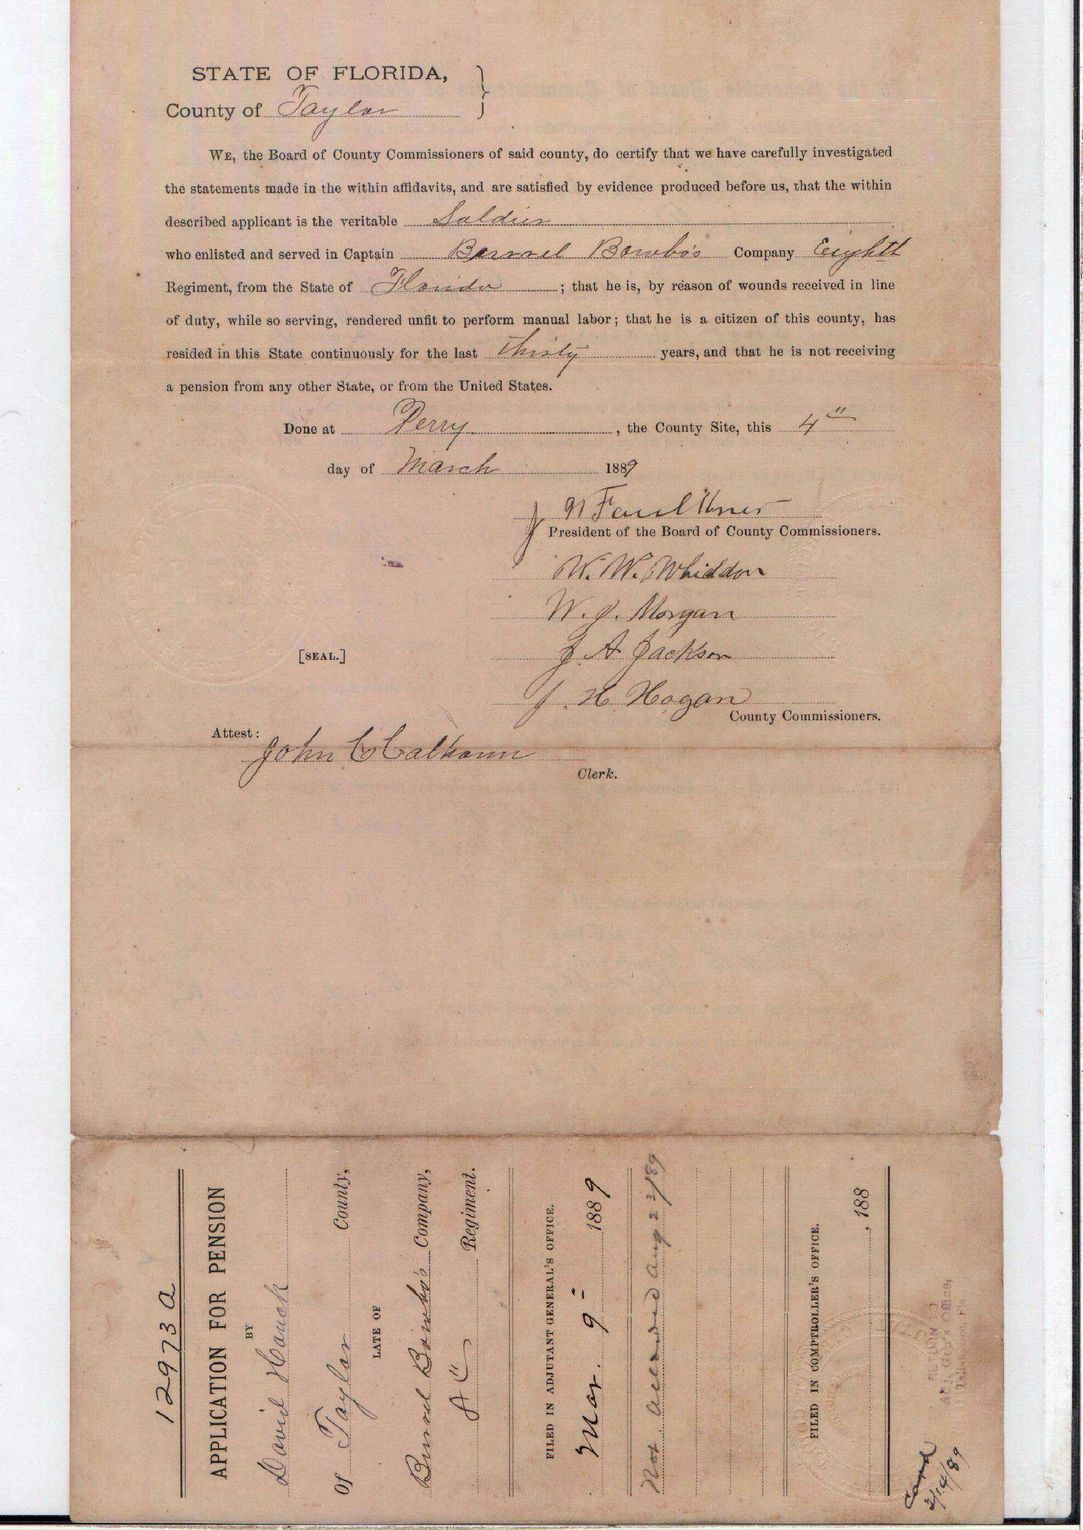 STATE OF FLORIDA, }
County of Taylor
WE, the Board of County Commissioners of said county, do certify that we have carefully investigated
the statements made in the within affidavits, and are satisfied by evidence produced before us, that the within
described applicant is the veritable Soldier
who enlisted and served in Captain Burrel Bowbo's Company Eighth
Regiment, from the State of Florida ; that he is, by reason of wounds received in line
of duty, while so serving, rendered unfit to perform manual labor; that he is a citizen of this county, has
resided in this State continuously for the last thirty years, and that he is not receiving
a pension from any other State, or from the United States.
Done at Perry , the County Site, this 4"
day of March 1889
J N Faulkner
President of the Board of County Commissioners.
W. W. Whiddon
W. J. Morgan
[SEAL.]
J A Jackson
J. H Hogan
County Commissioners.
Attest:
John C Calhoun
Clerk.
12973 A
APPLICATION FOR PENSION
BY
David Houck
Of Taylor County,
LATE OF
Burrel Bowbo's Company,
8" Regiment.
FILED IN ADJUTANT GENERAL'S OFFICE.
Mar. 9" 1889
Not allowed Aug 2 2/89
FILED IN COMPTROLLER'S OFFICE.
, 188
RETURN TO
ADJ. GEN'S Office,
Tallahassee, Fla.
Card
2/14/89